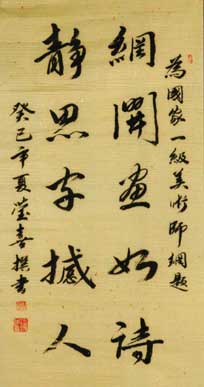 為國家一級美術師網題
網開畫如詩
靜思字撼人
癸巳年夏瑩喜撰書